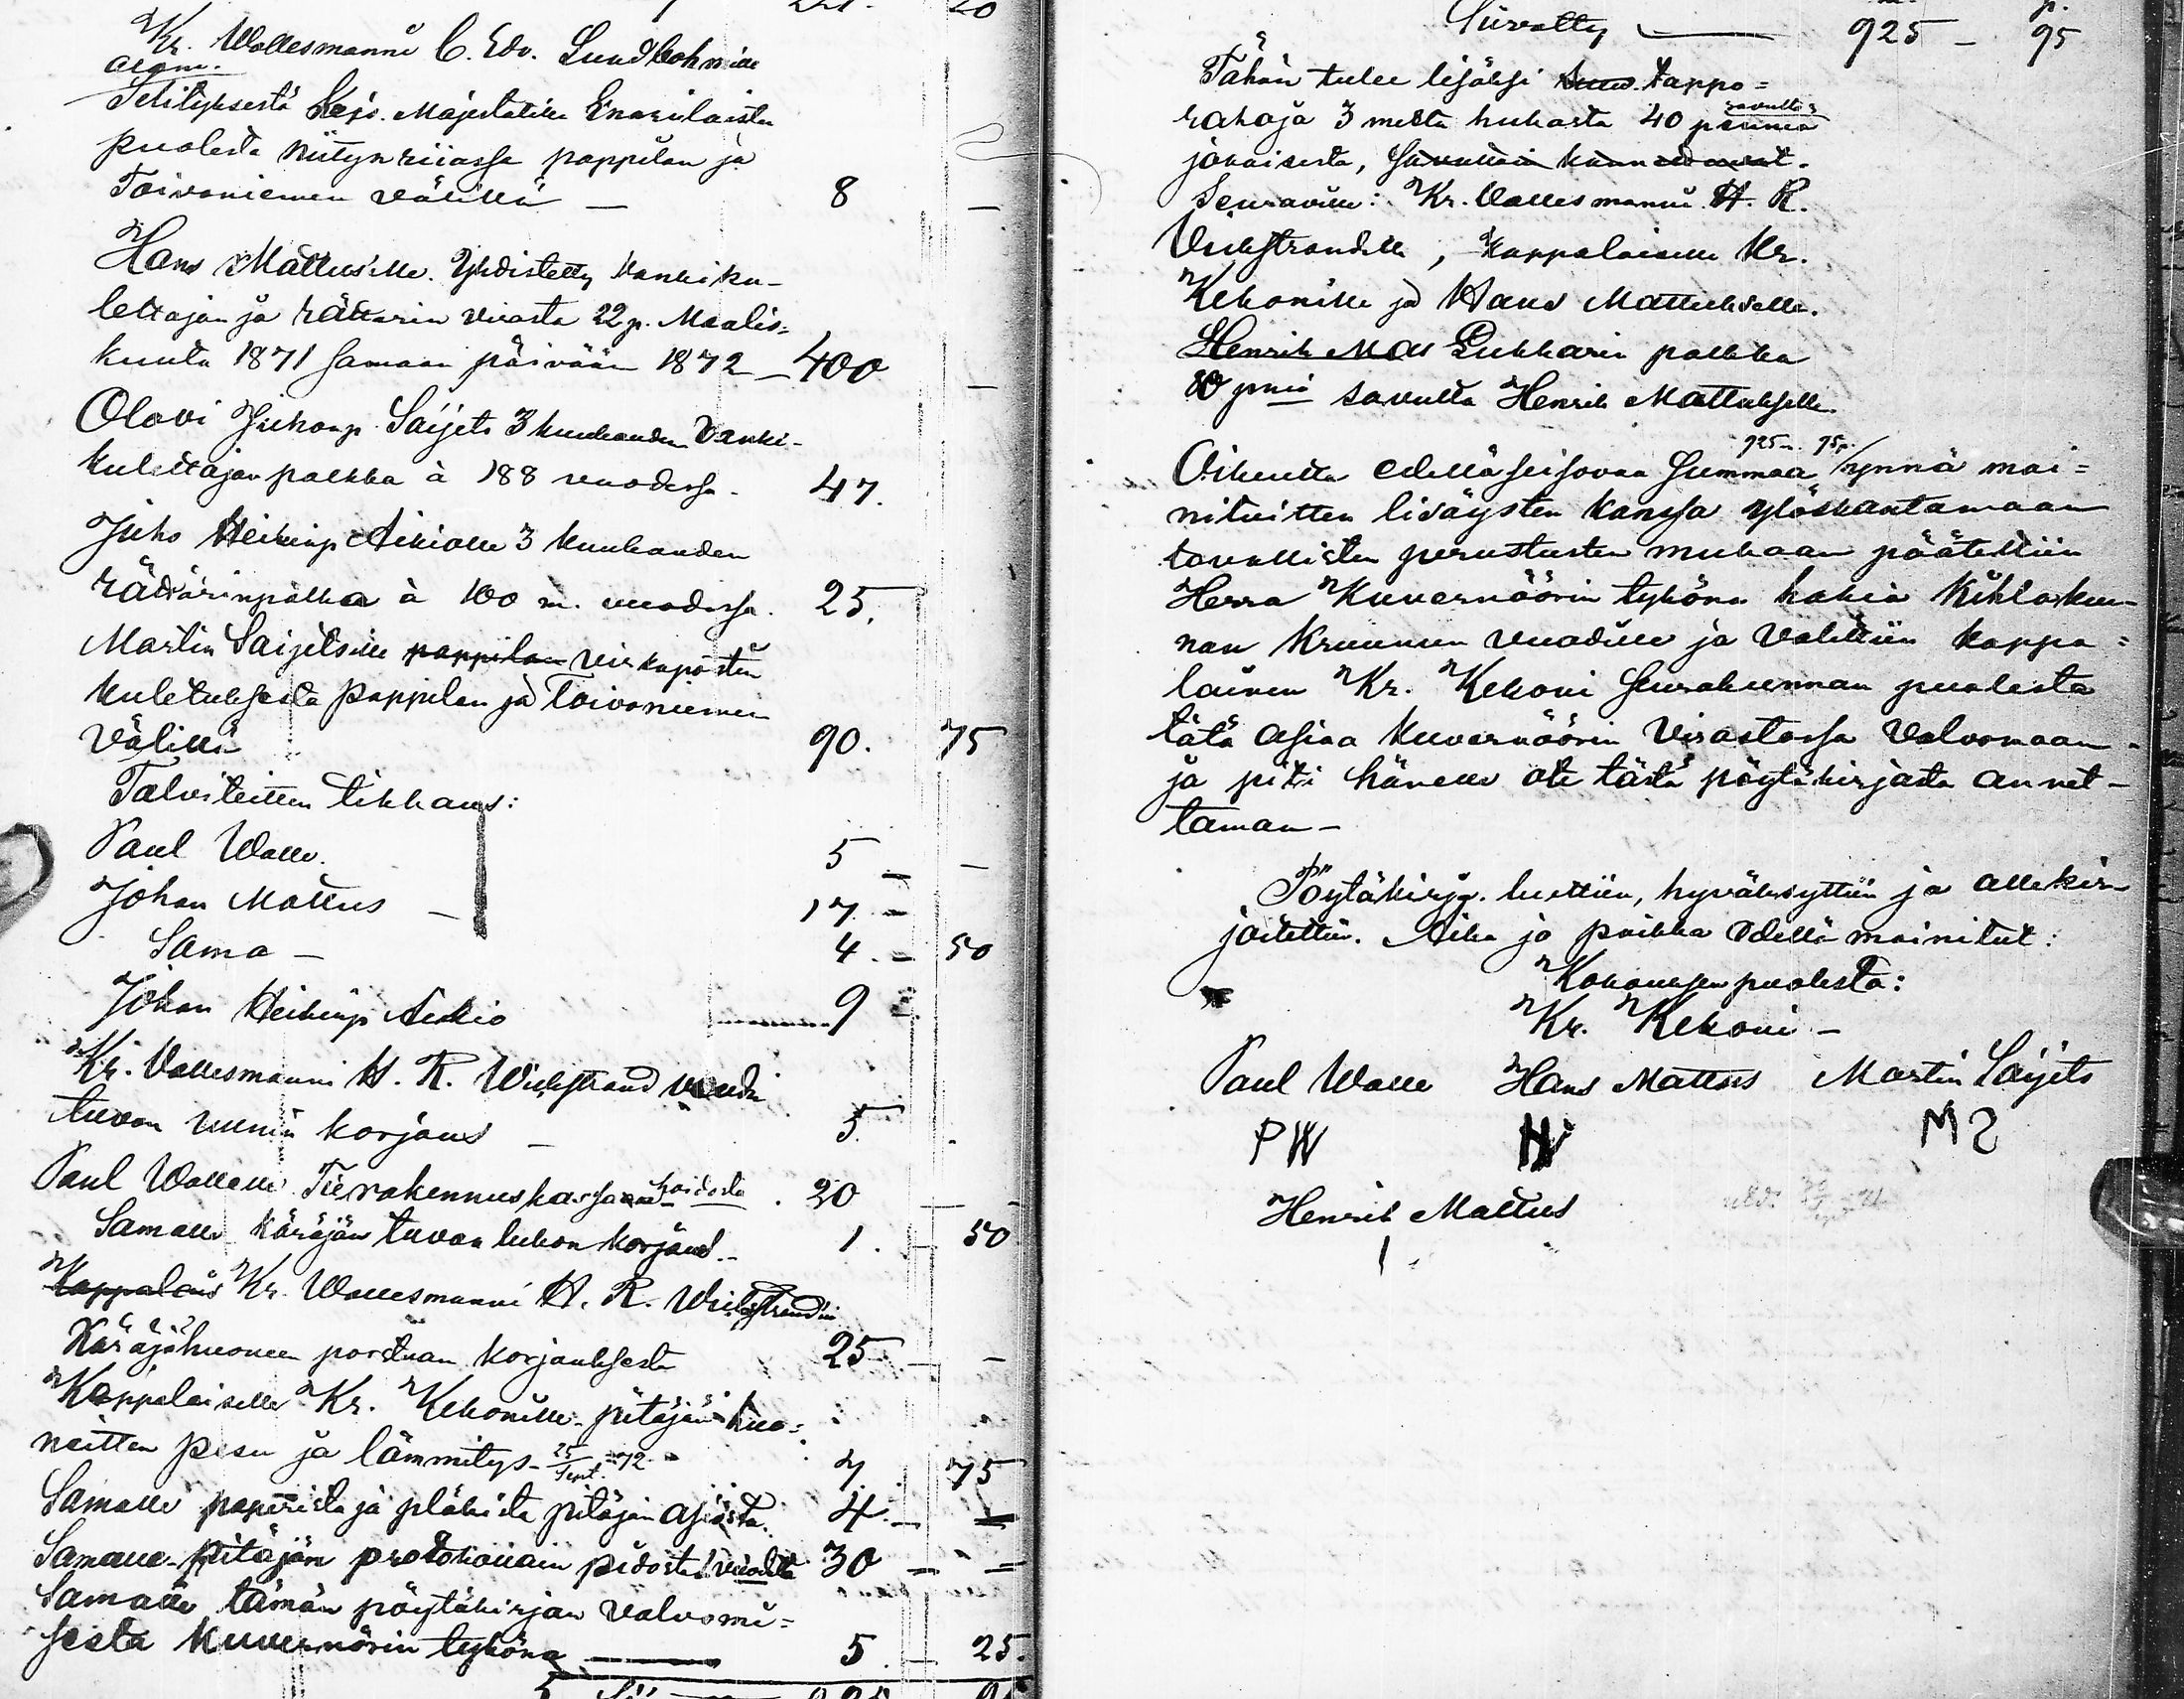 Kr. Wallesmanni C. Edv. Lundbohmille
Selityksestä Keis. Majestätille Enarilaisten
puolesta niityn riiassa pappilan ja
Toivoniemen välillä — 8 —
Hans Mattus'elle. Yhdistetty Vankiku-
lettajan ja rättärin virasta 22 p. Maalis-
kuuta 1871 samaan päivään 1872 — 400 —
Olavi Juhanp. Saijets 3 kuukauden Vanki-
kulettajan palkka à 188 vuodessa. 47.
Juho Heikinp Aikiolle 3 kuukauden
rättärinpalkka à 100 m. vuodessa. 25.
Martin Saijetsille pappilan virkapostin
kuletuksesta Pappilan ja Toivoniemen
Välillä 90. 75
Talviteitten tikkaus:
Paul Walle. 5 —
Johan Mattus — 17 —
Sama — 4. — 50
Johan Heikinp Aikio 9
Kr. Vallesmanni H. R. Wickstrand
tuvan uunin korjaus — 5
Paul Wallelle Tierakennuskassan hoidosta . 20
Samalle Käräjän tuvan lukon korjaus — 1. 50
Kappalais Kr. Wallesmanni H. R. Wickstrandin
Käräjähuoneen porstuan korjauksesta 25 —
Kappalaiselle Kr. Kekonille pitäjän huo-
neitten pesu ja lämmitys 25/Sept. 72 7. 75
Samalle paperista ja pläkistä pitäjän asioista. 4. —
Samalle pitäjän protokollain pidosta vuodelta 30 —
Samalle tämän pöytäkirjan valvomi-
sesta kuvernörin tykönä — 5 25.
Siirretty — 925 — 95
Tähän tulee lisäksi tappo-
rahaja 3 mesta hukasta 40 penniä savulta
jokaisesta,
Seuraville: Kr. Vallesmanni H. R.
Wickstrandille, Kappalaiselle Kr.
Kekonille ja Hans Mattukselle.
Henrik Mat Lukkarin palkka
10 pniä savulta Henrik Mattukselle.
925 m. 95 p.
Oikeutta edelläseisovaa Summaa ynnä mai-
nituitten lisäysten kanssa ylöskantamaan
tavallisten perustusten mukaan päätettiin
Herra Kuvernöörin tykönä hakia Kihlakun-
nan Kruunun vuodille ja Valittiin kappa-
lainen Kr. Kekoni Seurakunnan puolesta
tätä asiaa Kuvernöörin Virastossa Valvomaan
ja piti hänelle ote tästä pöytäkirjasta annet-
taman —
Pöytäkirja luettiin, hyväksyttiin ja allekir-
joitettiin. Aika ja paikka edellä mainitut:
Kokouksen puolesta:
Kr. Kekoni —
Paul Walle Hans Mattus Martin Saijets
PW MS
Henrik Mattus